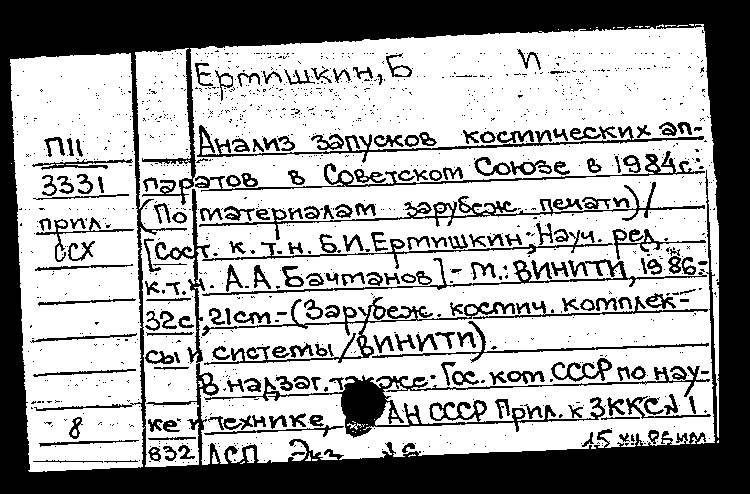 Ермишкин, Б И
П11
3331
прил.
ССХ
8
Анализ запусков космических ап-
паратов в Советском Союзе в 1984г.:
(По материалам зарубеж. печати)/
[Сост. к.т.н. Б.И.Ермишкин; Науч. ред.
к.т.н. А.А.Бачманов].- М.: ВИНИТИ, 1986.-
32с.; 21см.- (Зарубеж. космич. комплек-
сы и системы /ВИНИТИ).
В надзаг. также: Гос. ком. СССР по нау-
ке и технике, АН СССР Прил. к ЗККС №1.
832 ДСП. Экз.